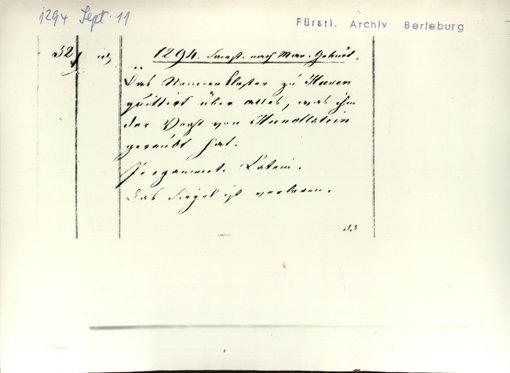 1294 Sept. 11
Fürstl. Archiv Berleburg
32
1294. Samst. nach Mar. Geburt.
Das Nonnenkloster zu
quittirt über alles, was ihm
der Vogt von
geraubt hat.
Pergament. Latein.
Das Siegel ist verloren.